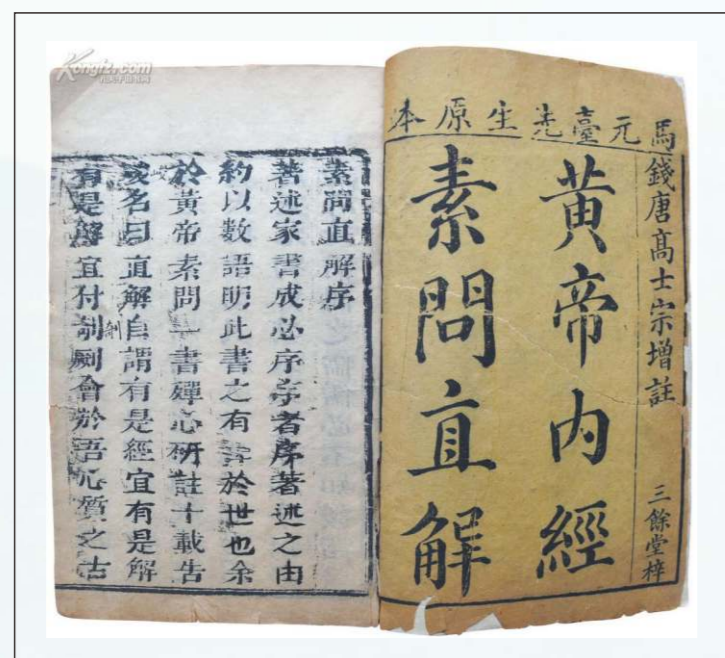 Kongfz.com
馬元臺先生原本
錢唐高士宗增註
黃帝內經
素問直解
三餘堂梓
素問直解序
著述家書成必序序者序著述之由
約以數語明此書之有 於世也余
於黃帝素問一書殫心研註十載告
成名曰直解自謂有是經宜有是解
有是解宜付剞劂會於吾 質之古